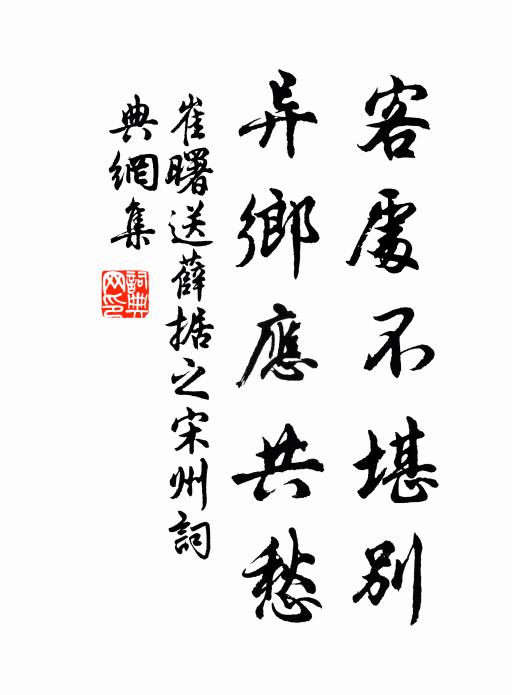 客處不堪別
异鄉應共愁
崔曙送薛據之宋州詞
典網集
詞典網印